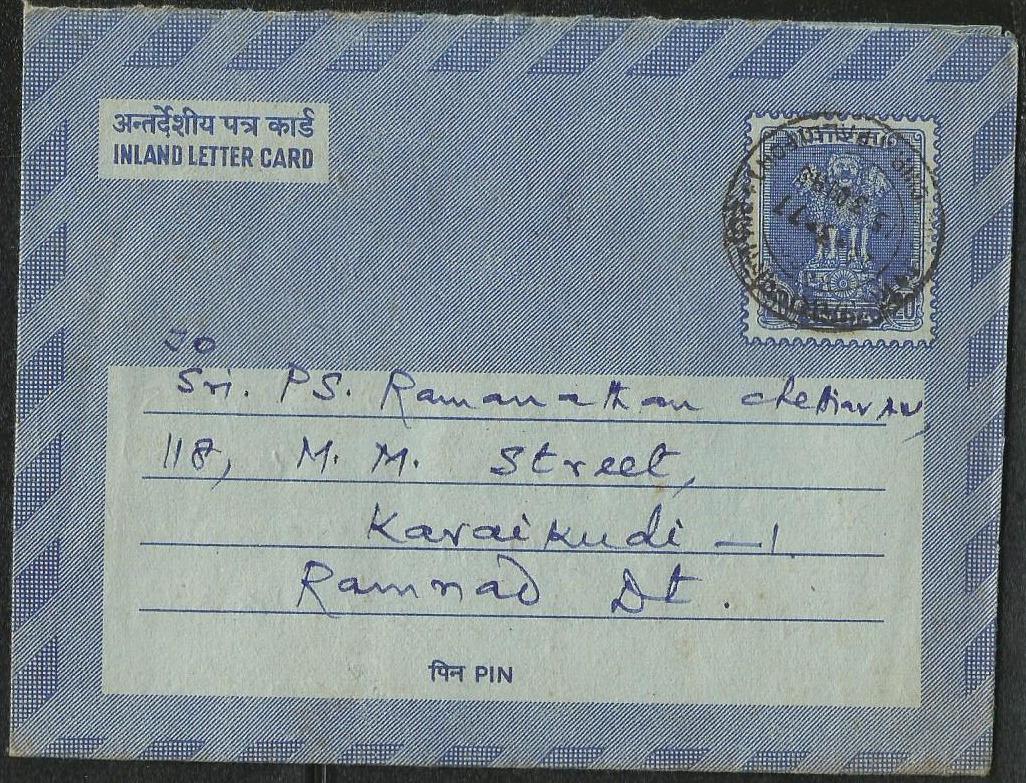 अन्तर्देशीय पत्र कार्ड
INLAND LETTER CARD
20
To
Sri. PS. Ramanathan chettiar
118, M. M. Street,
Karaikudi -1.
Ramnad Dt.
पिन PIN